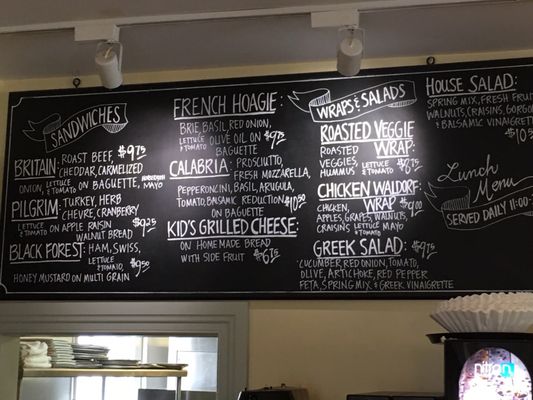 SANDWICHES
BRITAIN: ROAST BEEF, $9.75
CHEDDAR, CARMELIZED
ONION, LETTUCE & TOMATO ON BAGUETTE, MAYO
PILGRIM: TURKEY, HERB
CHEVRE, CRANBERRY $9.25
LETTUCE & TOMATO ON APPLE RAISIN
WALNUT BREAD
BLACK FOREST: HAM, SWISS,
LETTUCE & TOMATO $9.50
HONEY MUSTARD ON MULTI GRAIN
FRENCH HOAGIE:
BRIE, BASIL, RED ONION, $9.75
LETTUCE & TOMATO OLIVE OIL ON
BAGUETTE
CALABRIA: PROSCIUTTO,
FRESH MOZZARELLA,
PEPPERONCINI, BASIL, ARUGULA,
TOMATO, BALSAMIC REDUCTION $10.50
ON BAGUETTE
KID'S GRILLED CHEESE:
ON HOMEMADE BREAD
WITH SIDE FRUIT $6.75
WRAPS & SALADS
ROASTED VEGGIE
WRAP:
ROASTED
VEGGIES, LETTUCE & TOMATO $8.75
HUMMUS
CHICKEN WALDORF
WRAP $9.00
CHICKEN,
APPLES, GRAPES, WALNUTS,
CRAISINS LETTUCE & TOMATO MAYO
GREEK SALAD: $9.75
CUCUMBER, RED ONION, TOMATO,
OLIVE, ARTICHOKE, RED PEPPER
FETA, SPRING MIX, & GREEK VINAIGRETTE
HOUSE SALAD:
SPRING MIX, FRESH FRUIT
WALNUTS, CRAISINS, GORGON
& BALSAMIC VINAIGRETTE
$10.50
Lunch
Menu
SERVED DAILY 11:00-
nitro